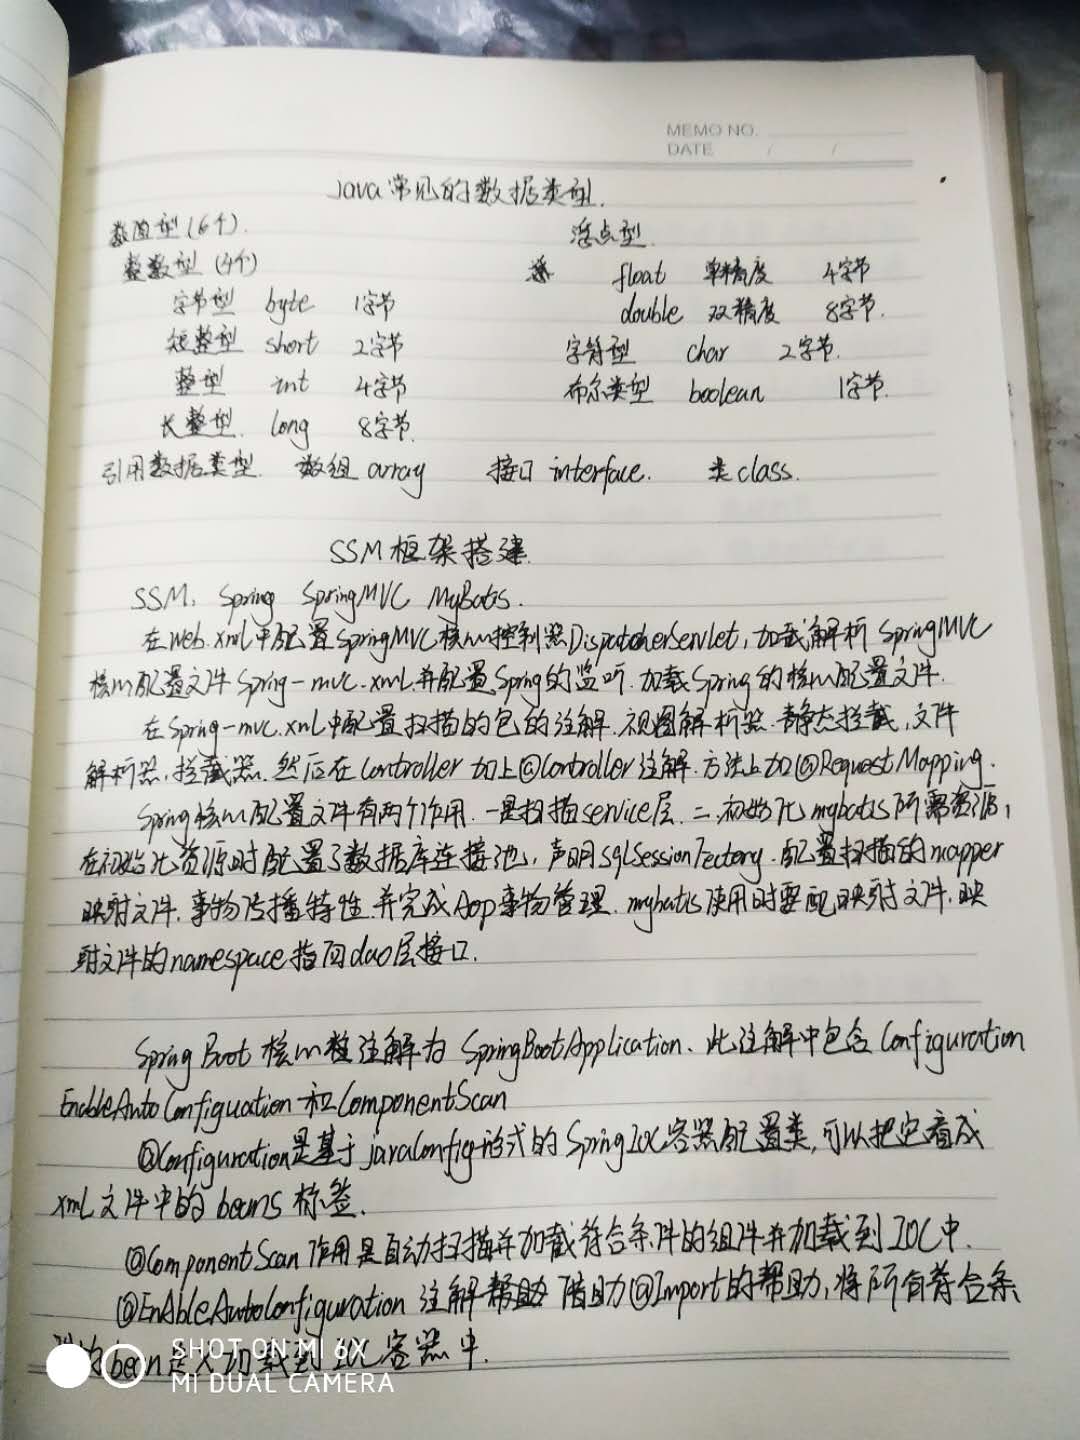 MEMO NO.
DATE / /
Java常见的数据类型.
数值型(6个).
浮点型.
整数型(4个)
float 单精度 4字节
字节型 byte 1字节
double 双精度 8字节.
短整型 short 2字节
字符型 char 2字节.
整型 int 4字节
布尔类型 boolean 1字节.
长整型. long 8字节.
引用数据类型. 数组 array 接口 interface. 类 class.
SSM框架搭建.
SSM: Spring SpringMVC MyBatis.
在web.xml中配置SpringMVC核心控制器DispatcherServlet,加载解析SpringMVC
核心配置文件Spring-mvc.xml.并配置Spring的监听.加载Spring的核心配置文件.
在Spring-mvc.xml中配置扫描的包的注解.视图解析器.静态拦截,文件
解析器,拦截器.然后在Controller加上@Controller注解.方法上加@RequestMapping.
Spring核心配置文件有两个作用.一是扫描service层.二.初始化mybatis所需资源,
在初始化资源时配置了数据库连接池,声明SqlSessionFectory.配置扫描的mapper
映射文件.事物传播特性.并完成Aop事物管理.mybatis使用时要配映射文件.映
射文件的namespace指向dao层接口.
Spring Boot 核心注解为 SpringBootApplication.此注解中包含Configuration
EnableAutoConfiguation和ComponentScan
@Configuration是基于javaConfig形式的Spring IOC容器配置类,可以把它看成
xml文件中的beans标签.
@ComponentScan作用是自动扫描并加载符合条件的组件并加载到IOC中.
@EnAbleAutoConfiguration 注解帮助 借助@Import的帮助,将所有符合条
件的bean定义加载到IOC容器中.
SHOT ON MI 6X
MI DUAL CAMERA